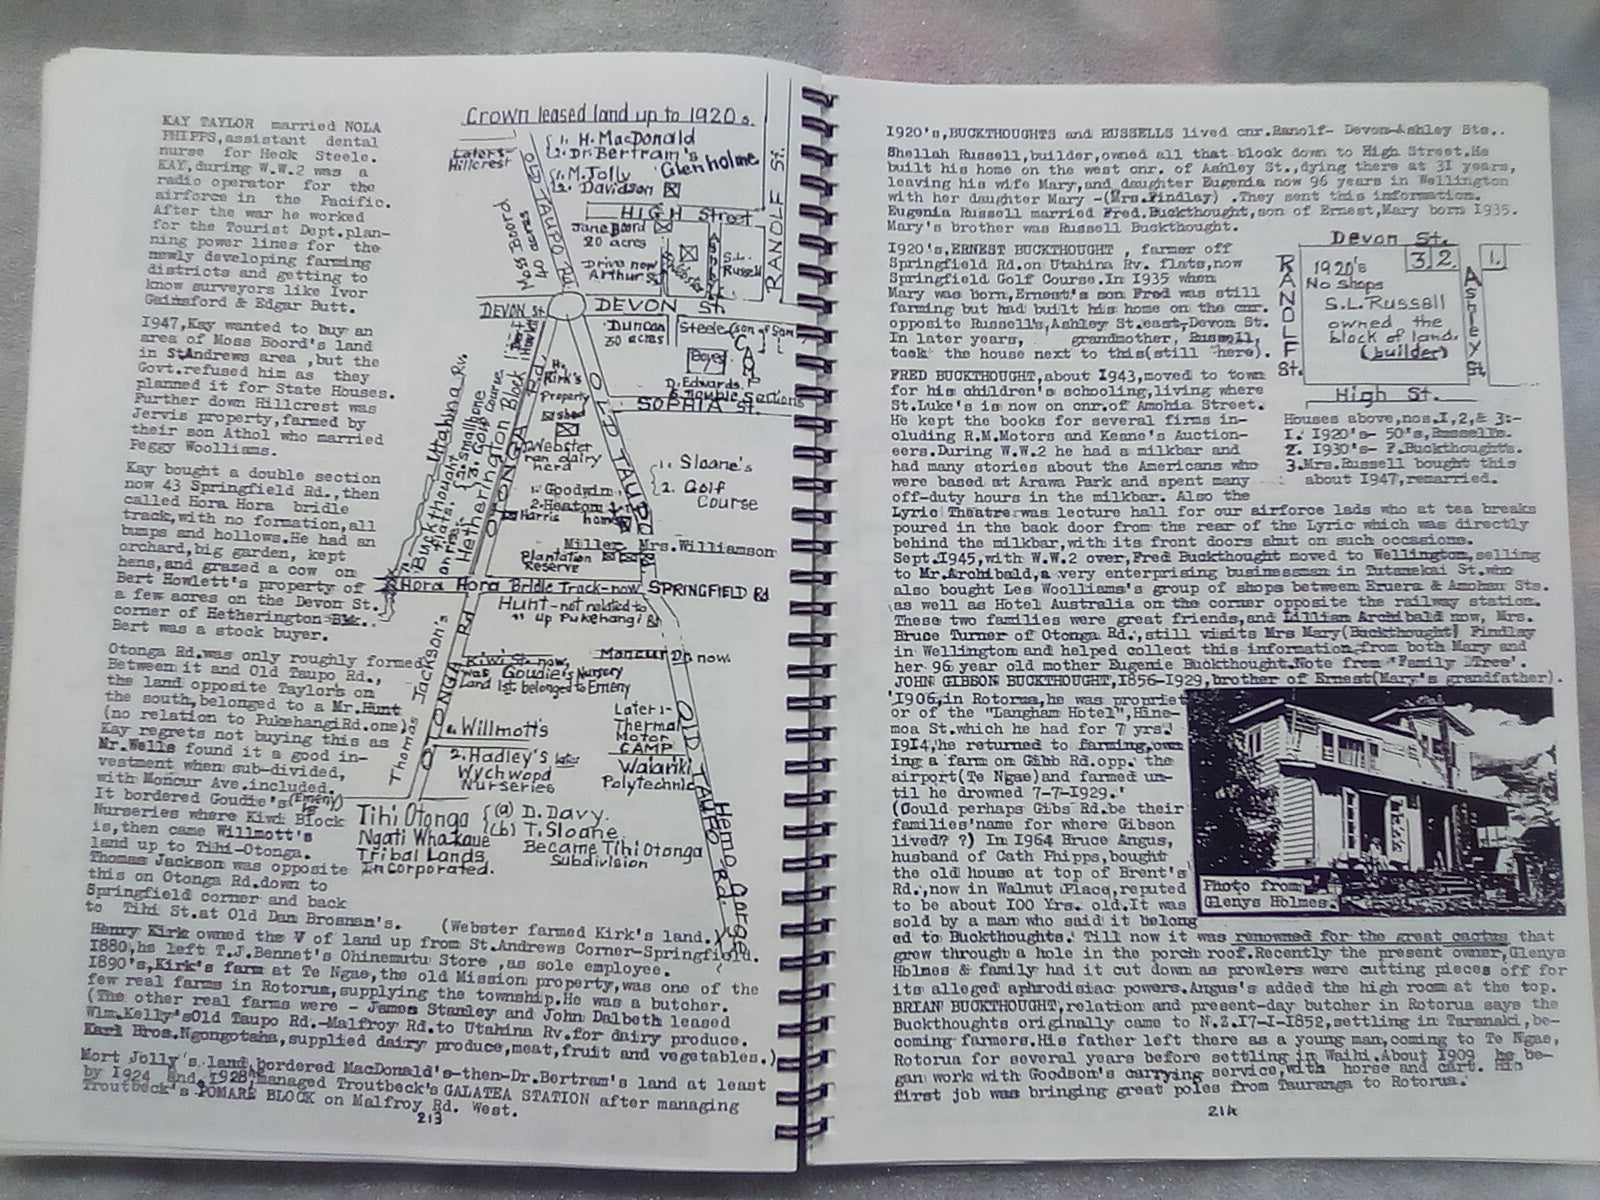 KAY TAYLOR married NOLA
PHIPPS,assistant dental
nurse for Heck Steele.
KAY,during W.W.2 was a
radio operator for the
airforce in the Pacific.
After the war he worked
for the Tourist Dept.plan-
ning power lines for the
newly developing farming
districts and getting to
know surveyors like Ivor
Gainsford & Edgar Butt.
1947,Kay wanted to buy an
area of Moss Boord's land
in StAndrews area ,but the
Govt.refused him as they
planned it for State Houses.
Further down Hillcrest was
Jervis property,farmed by
their son Athol who married
Peggy Woolliams.
Kay bought a double section
now 43 Springfield Rd.,then
called Hora Hora bridle
track,with no formation,all
bumps and hollows.He had an
orchard,big garden, kept
hens,and grazed a cow on
Bert Howlett's property of
a few acres on the Devon St.
corner of Hetherington Blk..
Bert was a stock buyer.
Otonga Rd.was only roughly formed
Between it and Old Taupo Rd.,
the land opposite Taylor's on
the south,belonged to a Mr.Hunt
(no relation to PukehangiRd.one)
Kay regrets not buying this as
Mr.Wells found it a good in-
vestment when sub-divided,
with Moncur Ave.included.
It bordered Goudie's (Emeny 1st)
Nurseries where Kiwi Block
is,then came Willmott's
land up to Tihi-Otonga.
Thomas Jackson was opposite
this on Otonga Rd.down to
Springfield corner and back
to Tihi St.at Old Dan Brosnan's. (Webster farmed Kirk's land.)
Henry Kirk owned the V of land up from St.Andrews Corner-Springfield.
1880,he left T.J.Bennet's Ohinemutu Store ,as sole employee.
1890's,Kirk's farm at Te Ngae,the old Mission property,was one of the
few real farms in Rotorua,supplying the township.He was a butcher.
(The other real farms were - James Stanley and John Dalbeth leased
Wlm.Kelly'sOld Taupo Rd.-Malfroy Rd.to Utahina Rv.for dairy produce.
Karl Bros.Ngongotaha,supplied dairy produce,meat,fruit and vegetables.)
Mort Jolly's land bordered MacDonald's-then-Dr.Bertram's land at least
by 1924 and 1928,he managed Troutbeck's GALATEA STATION after managing
Troutbeck's POMARE BLOCK on Malfroy Rd. West.
213
Crown leased land up to 1920s.
Later:-
Hillcrest
1. H. MacDonald
2. Dr. Bertram's
Glenholme
1. M. Jolly
2. Davidson
OLD TAUPO Rd
Moss Boord
40 acres
HIGH Street
Jane Boord
20 acres
Drive now
Arthur St
S.L.
Russell
RANOLF St.
DEVON St.
DEVON St.
Duncan
30 acres
Steele (son of Sam
CAMP
D. Edwards.
SOPHIA St.
H.
Kirk's
Property
shed
Webster
ran dairy
herd
OLD TAUPO
1. Sloane's
2. Golf
Course
Utahina Rv.
Buckthought
Hetherington Block
OTONGA Rd
1. Goodwin
2. Heaton
Harris
home
Miller
Mrs. Williamson
Plantation
Reserve
Hora Hora Bridle Track-now SPRINGFIELD Rd
Hunt - not related to
" up Pukehangi Rd
Kiwi St. now,
was Goudie's Nursery
Land 1st. belonged to Emeny
Moncur Dr. now.
Thomas Jackson's
OTONGA Rd
1. Willmott's
2. Hadley's later
Wychwood
Nurseries
Later:-
Thermal
Motor
CAMP
Waiariki
Polytechnic
OLD TAUPO Rd.
Hemo Gorge
Tihi Otonga
Ngati Whakaue
Tribal Lands
Incorporated.
(a) D. Davy.
(b) T. Sloane.
Became Tihi Otonga
Subdivision
1920's,BUCKTHOUGHTS and RUSSELLS lived cnr.Ranolf- Devon-Ashley Sts..
Shellah Russell,builder,owned all that block down to High Street.He
built his home on the west cnr. of Ashley St.,dying there at 31 years,
leaving his wife Mary,and daughter Eugenia now 96 years in Wellington
with her daughter Mary -(Mrs.Findlay) .They sent this information.
Eugenia Russell married Fred.Buckthought,son of Ernest,Mary born 1935.
Mary's brother was Russell Buckthought.
1920's,ERNEST BUCKTHOUGHT , farmer off
Springfield Rd.on Utahina Rv. flats,now
Springfield Golf Course.In 1935 when
Mary was born,Ernest's son Fred was still
farming but had built his home on the cnr.
opposite Russell's,Ashley St.east,Devon St.
In later years, grandmother, Russell,
took the house next to this(still here).
FRED BUCKTHOUGHT,about 1943,moved to town
for his children's schooling,living where
St.Luke's is now on cnr.of Amohia Street.
He kept the books for several firms in-
cluding R.M.Motors and Keane's Auction-
eers.During W.W.2 he had a milkbar and
had many stories about the Americans who
were based at Arawa Park and spent many
off-duty hours in the milkbar. Also the
Lyric Theatre was lecture hall for our airforce lads who at tea breaks
poured in the back door from the rear of the Lyric which was directly
behind the milkbar,with its front doors shut on such occasions.
Sept.1945,with W.W.2 over,Fred Buckthought moved to Wellington,selling
to Mr.Archibald,a very enterprising businessman in Tutanekai St.who
also bought Les Woolliams's group of shops between Eruera & Amohau Sts.
as well as Hotel Australia on the corner opposite the railway station.
These two families were great friends,and Lillian Archibald now, Mrs.
Bruce Turner of Otonga Rd.,still visits Mrs Mary(Buckthought) Findlay
in Wellington and helped collect this information,from both Mary and
her 96 year old mother Eugenie Buckthought.Note from 'Family Tree'.
JOHN GIBSON BUCKTHOUGHT,1856-1929,brother of Ernest(Mary's grandfather).
'1906,in Rotorua,he was propriet
or of the "Langham Hotel",Hine-
moa St.which he had for 7 yrs.
1914,he returned to farming,own
ing a farm on Gibb Rd.opp. the
airport(Te Ngae)and farmed un-
til he drowned 7-7-1929.'
(Could perhaps Gibs Rd.be their
families'name for where Gibson
lived? ?) In 1964 Bruce Angus,
husband of Cath Phipps,bought
the old house at top of Brent's
Rd.,now in Walnut Place,reputed
to be about 100 Yrs. old.It was
sold by a man who said it belong
ed to Buckthoughts. Till now it was renowned for the great cactus that
grew through a hole in the porch roof.Recently the present owner,Glenys
Holmes & family had it cut down as prowlers were cutting pieces off for
its alleged aphrodisiac powers.Angus's added the high room at the top.
BRIAN BUCKTHOUGHT,relation and present-day butcher in Rotorua says the
Buckthoughts originally came to N.Z.17-1-1852,settling in Taranaki,be-
coming farmers.His father left there as a young man,coming to Te Ngae,
Rotorua for several years before settling in Waihi.About 1909 he be-
gan work with Goodson's carrying service,with horse and cart. His
first job was bringing great poles from Tauranga to Rotorua.
214
Devon St.
RANOLF St.
3 2
1.
1920's
No shops
S.L. Russell
owned the
block of land.
(builder)
Ashley St.
High St.
Houses above,nos.1,2,& 3:-
1. 1920's- 50's,Russells.
2. 1930's- ?.Buckthought's.
3.Mrs.Russell bought this
about 1947,remarried.
Photo from
Glenys Holmes.